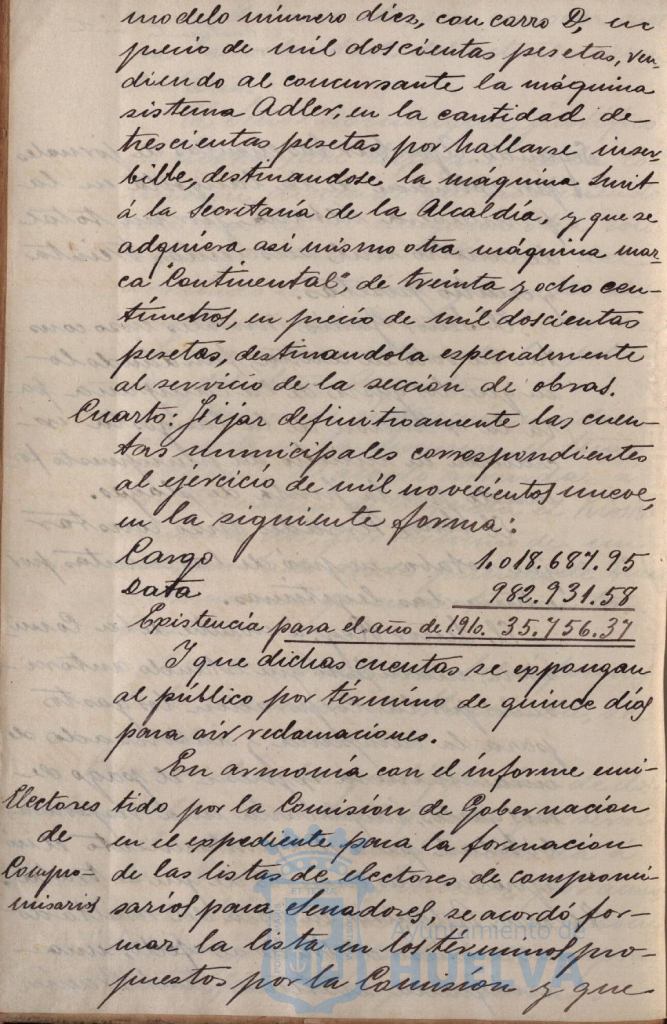 modelo número diez, con carro D, en
precio de mil doscientas pesetas, ven-
diendo al concursante la máquina
sistema Adler, en la cantidad de
trescientas pesetas por hallarse inser-
bible, destinandose la máquina Smit
á la Secretaría de la Alcaldía, y que se
adquiera asi mismo otra máquina mar-
ca "Continental", de treinta y ocho cen-
tímetros, en precio de mil doscientas
pesetas, destinandola especialmente
al servicio de la sección de obras.
Cuarto: Fijar definitivamente las cuen-
tas municipales correspondientes
al ejercicio de mil novecientos nueve,
en la siguiente forma:
Cargo 1.018.687.95
Data 982.931.58
Existencia para el año de 1910. 35.756.37
Y que dichas cuentas se expongan
al público por término de quince días
para oir reclamaciones.
En armonía con el informe emi-
Electores de Compro-misarios
tido por la Comisión de Gobernación
en el expediente para la formacion
de las listas de electores de compromi-
sarios para Senadores, se acordó for-
mar la lista en los términos pro-
puestos por la Comisión y que
Ayuntamiento de
HUELVA